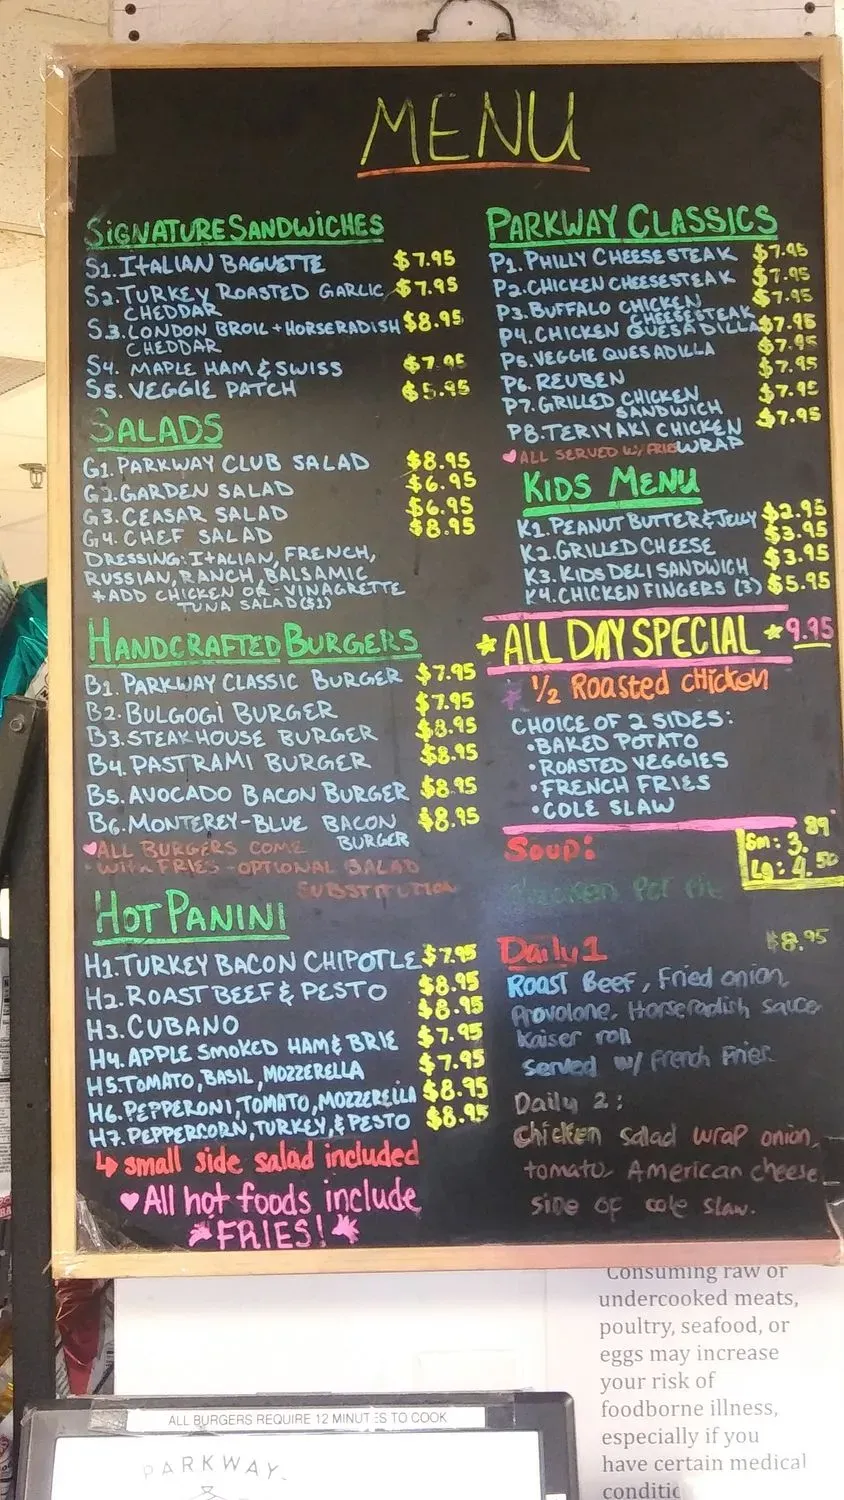 MENU
SIGNATURE SANDWICHES
S1. ITALIAN BAGUETTE $7.95
S2. TURKEY ROASTED GARLIC $7.95
CHEDDAR
S3. LONDON BROIL + HORSERADISH $8.95
CHEDDAR
S4. MAPLE HAM & SWISS $7.95
S5. VEGGIE PATCH $5.95
SALADS
G1. PARKWAY CLUB SALAD $8.95
G2. GARDEN SALAD $6.95
G3. CEASAR SALAD $6.95
G4. CHEF SALAD $8.95
DRESSING: ITALIAN, FRENCH,
RUSSIAN, RANCH, BALSAMIC
*ADD CHICKEN OR - VINAGRETTE
TUNA SALAD ($1)
HANDCRAFTED BURGERS
B1. PARKWAY CLASSIC BURGER $7.95
B2. BULGOGI BURGER $7.95
B3. STEAKHOUSE BURGER $8.95
B4. PASTRAMI BURGER $8.95
B5. AVOCADO BACON BURGER $8.95
B6. MONTEREY-BLUE BACON $8.95
BURGER
♥ALL BURGERS COME
WITH FRIES - OPTIONAL SALAD
SUBSTITUTION
HOT PANINI
H1. TURKEY BACON CHIPOTLE $7.95
H2. ROAST BEEF & PESTO $8.95
H3. CUBANO $8.95
H4. APPLE SMOKED HAM & BRIE $7.95
H5. TOMATO, BASIL, MOZZERELLA $7.95
H6. PEPPERONI, TOMATO, MOZZERELLA $8.95
H7. PEPPERCORN, TURKEY, & PESTO $8.95
↳ small side salad included
♥All hot foods include
*FRIES!*
PARKWAY CLASSICS
P1. PHILLY CHEESESTEAK $7.95
P2. CHICKEN CHEESESTEAK $7.95
P3. BUFFALO CHICKEN $7.95
CHEESESTEAK
P4. CHICKEN QUESADILLA $7.95
P5. VEGGIE QUESADILLA $7.95
P6. REUBEN $7.95
P7. GRILLED CHICKEN $7.95
SANDWICH
P8. TERIYAKI CHICKEN $7.95
WRAP
♥ALL SERVED W/ FRIES
KIDS MENU
K1. PEANUT BUTTER & JELLY $2.95
K2. GRILLED CHEESE $3.95
K3. KIDS DELI SANDWICH $3.95
K4. CHICKEN FINGERS (3) $5.95
*ALL DAY SPECIAL* 9.95
* 1/2 Roasted chicken
CHOICE OF 2 SIDES:
•BAKED POTATO
•ROASTED VEGGIES
•FRENCH FRIES
•COLE SLAW
Soup: Sm: 3.89
Lg: 4.50
Chicken Pot Pie
Daily 1 $8.95
Roast Beef, Fried onion,
Provolone, Horseradish sauce
kaiser roll
served w/ French Fries
Daily 2:
Chicken salad wrap onion,
tomato, American cheese
side of cole slaw.
Consuming raw or
undercooked meats,
poultry, seafood, or
eggs may increase
your risk of
foodborne illness,
especially if you
have certain medical
conditic
ALL BURGERS REQUIRE 12 MINUTES TO COOK
PARKWAY